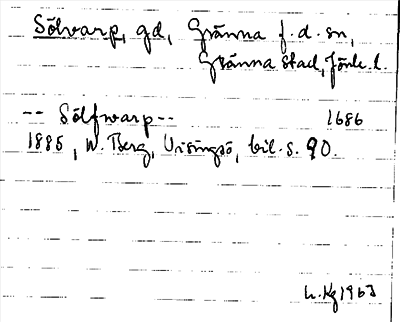 Sölvarp, gd, Gränna f.d. sn,
Gränna stad, Jönk. l.
-- Sölfwarp -- 1686
1885, W. Berg, Visingsö, bil. s. 90.
L. Kg 1963